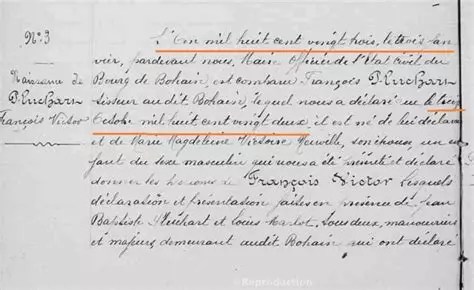 N.º 3
Naissance de
Pluchart
François Victor
L'An mil huit cent vingt trois, le trois Jan
vier, pardevant nous, Maire Officier de l'Etat Civil du
Bourg de Bohain, est comparu François Pluchart
Lisseur audit Bohain, lequel nous a déclaré
Octobre mil huit cent vingt deux, il est né de lui déclarant
et de Marie Magdeleine Victoire Neuville, son épouse, un en
fant du sexe masculin qui nous a été présenté et déclaré
donner les prénoms de François Victor Lesquels
déclaration et présentation faites en présence de Jean
Baptiste Pluchart et Louis Marlot, tous deux, manouvriers
et majeurs demeurant audit Bohain, qui ont déclaré
©Reproduction